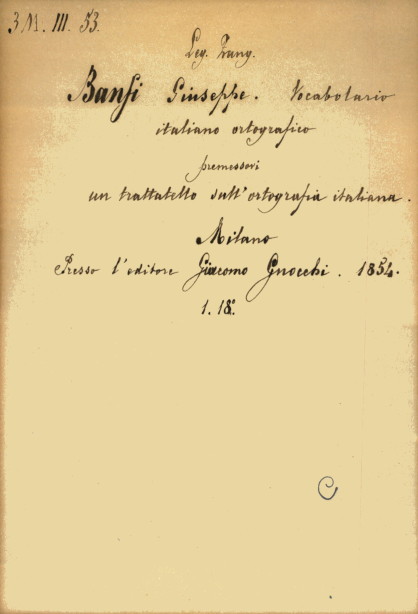 3 M. III. 53.
Leg. Trang.
Banfi Giuseppe. Vocabolario
italiano ortografico
premessovi
un trattatello sull'ortografia italiana.
Milano
Presso l'editore Giacomo Gnocchi. 1854.
1. 18°.
C